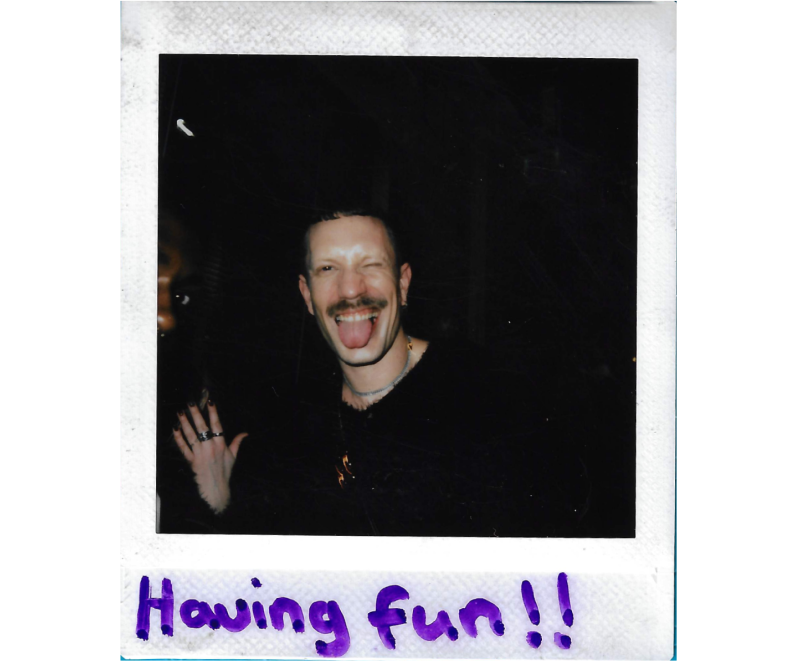 Having fun!!